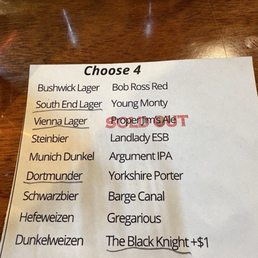 Choose 4
Bushwick Lager Bob Ross Red
South End Lager Young Monty
Vienna Lager Proper Jim's Ale
SOLD OUT
Steinbier Landlady ESB
Munich Dunkel Argument IPA
Dortmunder Yorkshire Porter
Schwarzbier Barge Canal
Hefeweizen Gregarious
Dunkelweizen The Black Knight +$1